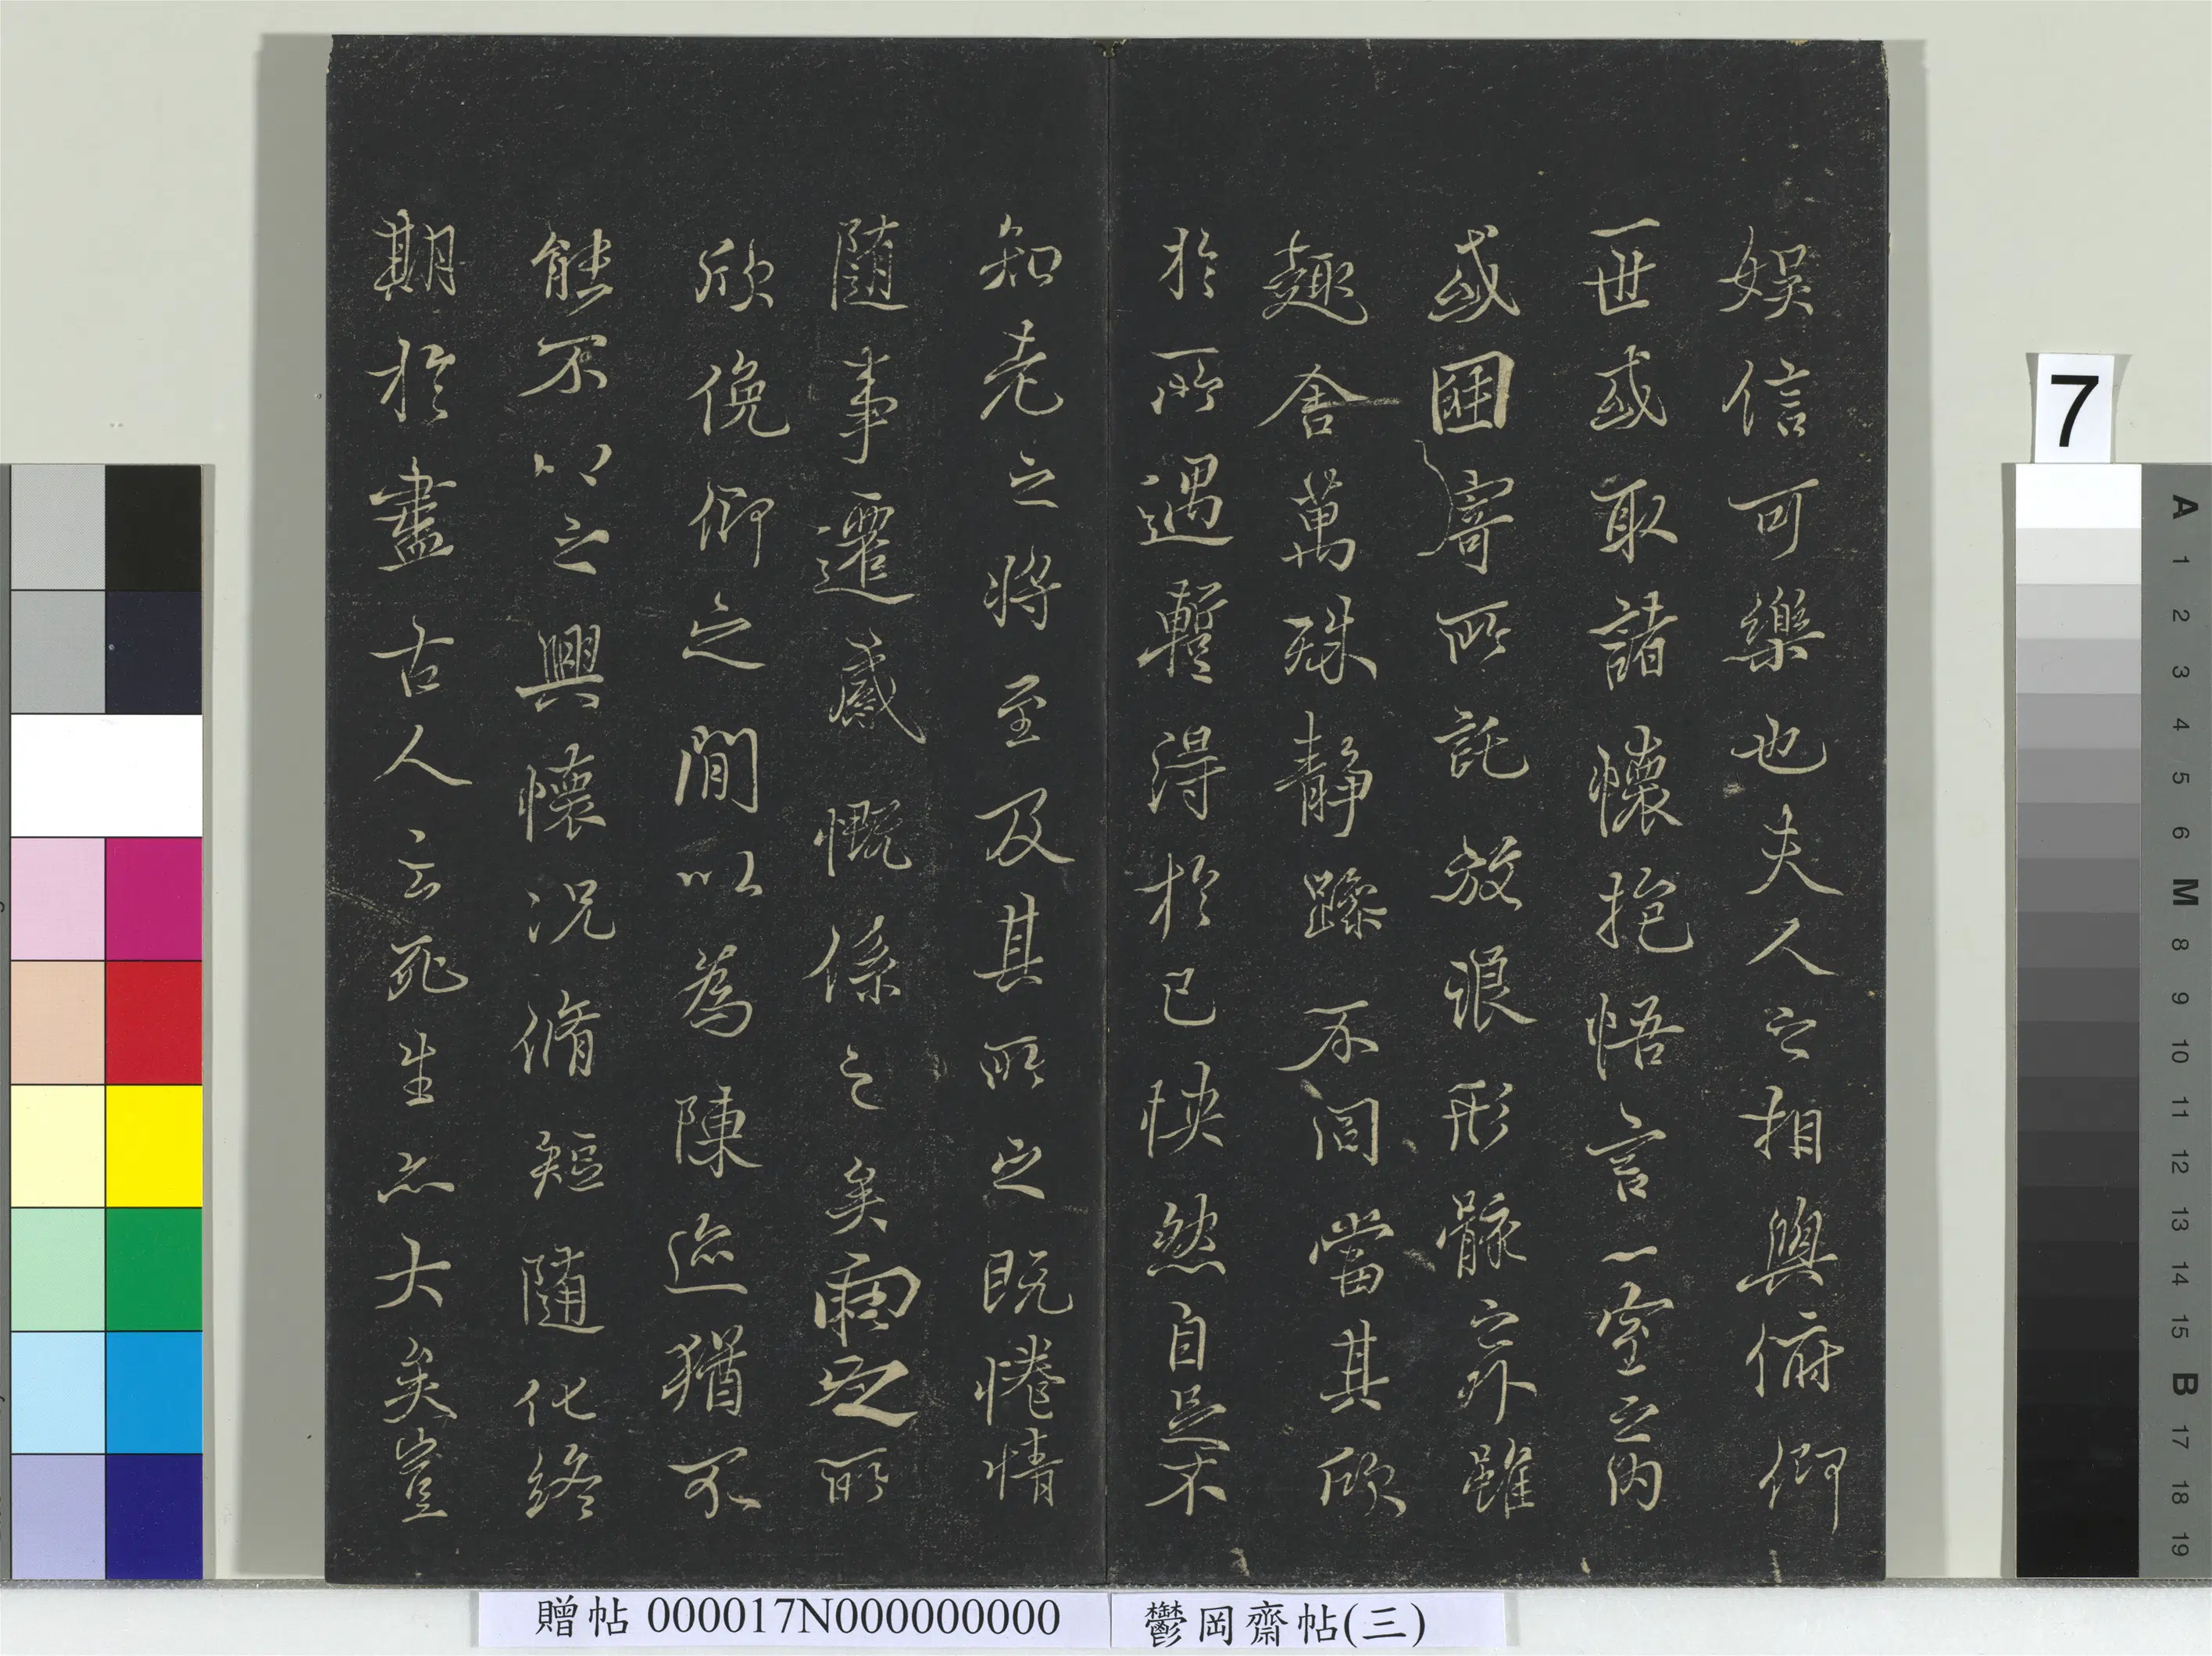 娛信可樂也夫人之相與俯仰
一世或取諸懷抱悟言一室之內
或因寄所託放浪形骸之外雖
趣舍萬殊靜躁不同當其欣
於所遇暫得於己怏然自足不
知老之將至及其所之既惓情
隨事遷感慨係之矣向之所
欣俛仰之閒以為陳迹猶不
能不以之興懷況脩短隨化終
期於盡古人云死生亦大矣豈
7
A 1 2 3 4 5 6 M 8 9 10 11 12 13 14 15 B 17 18 19
贈帖 000017N000000000
鬱岡齋帖(三)